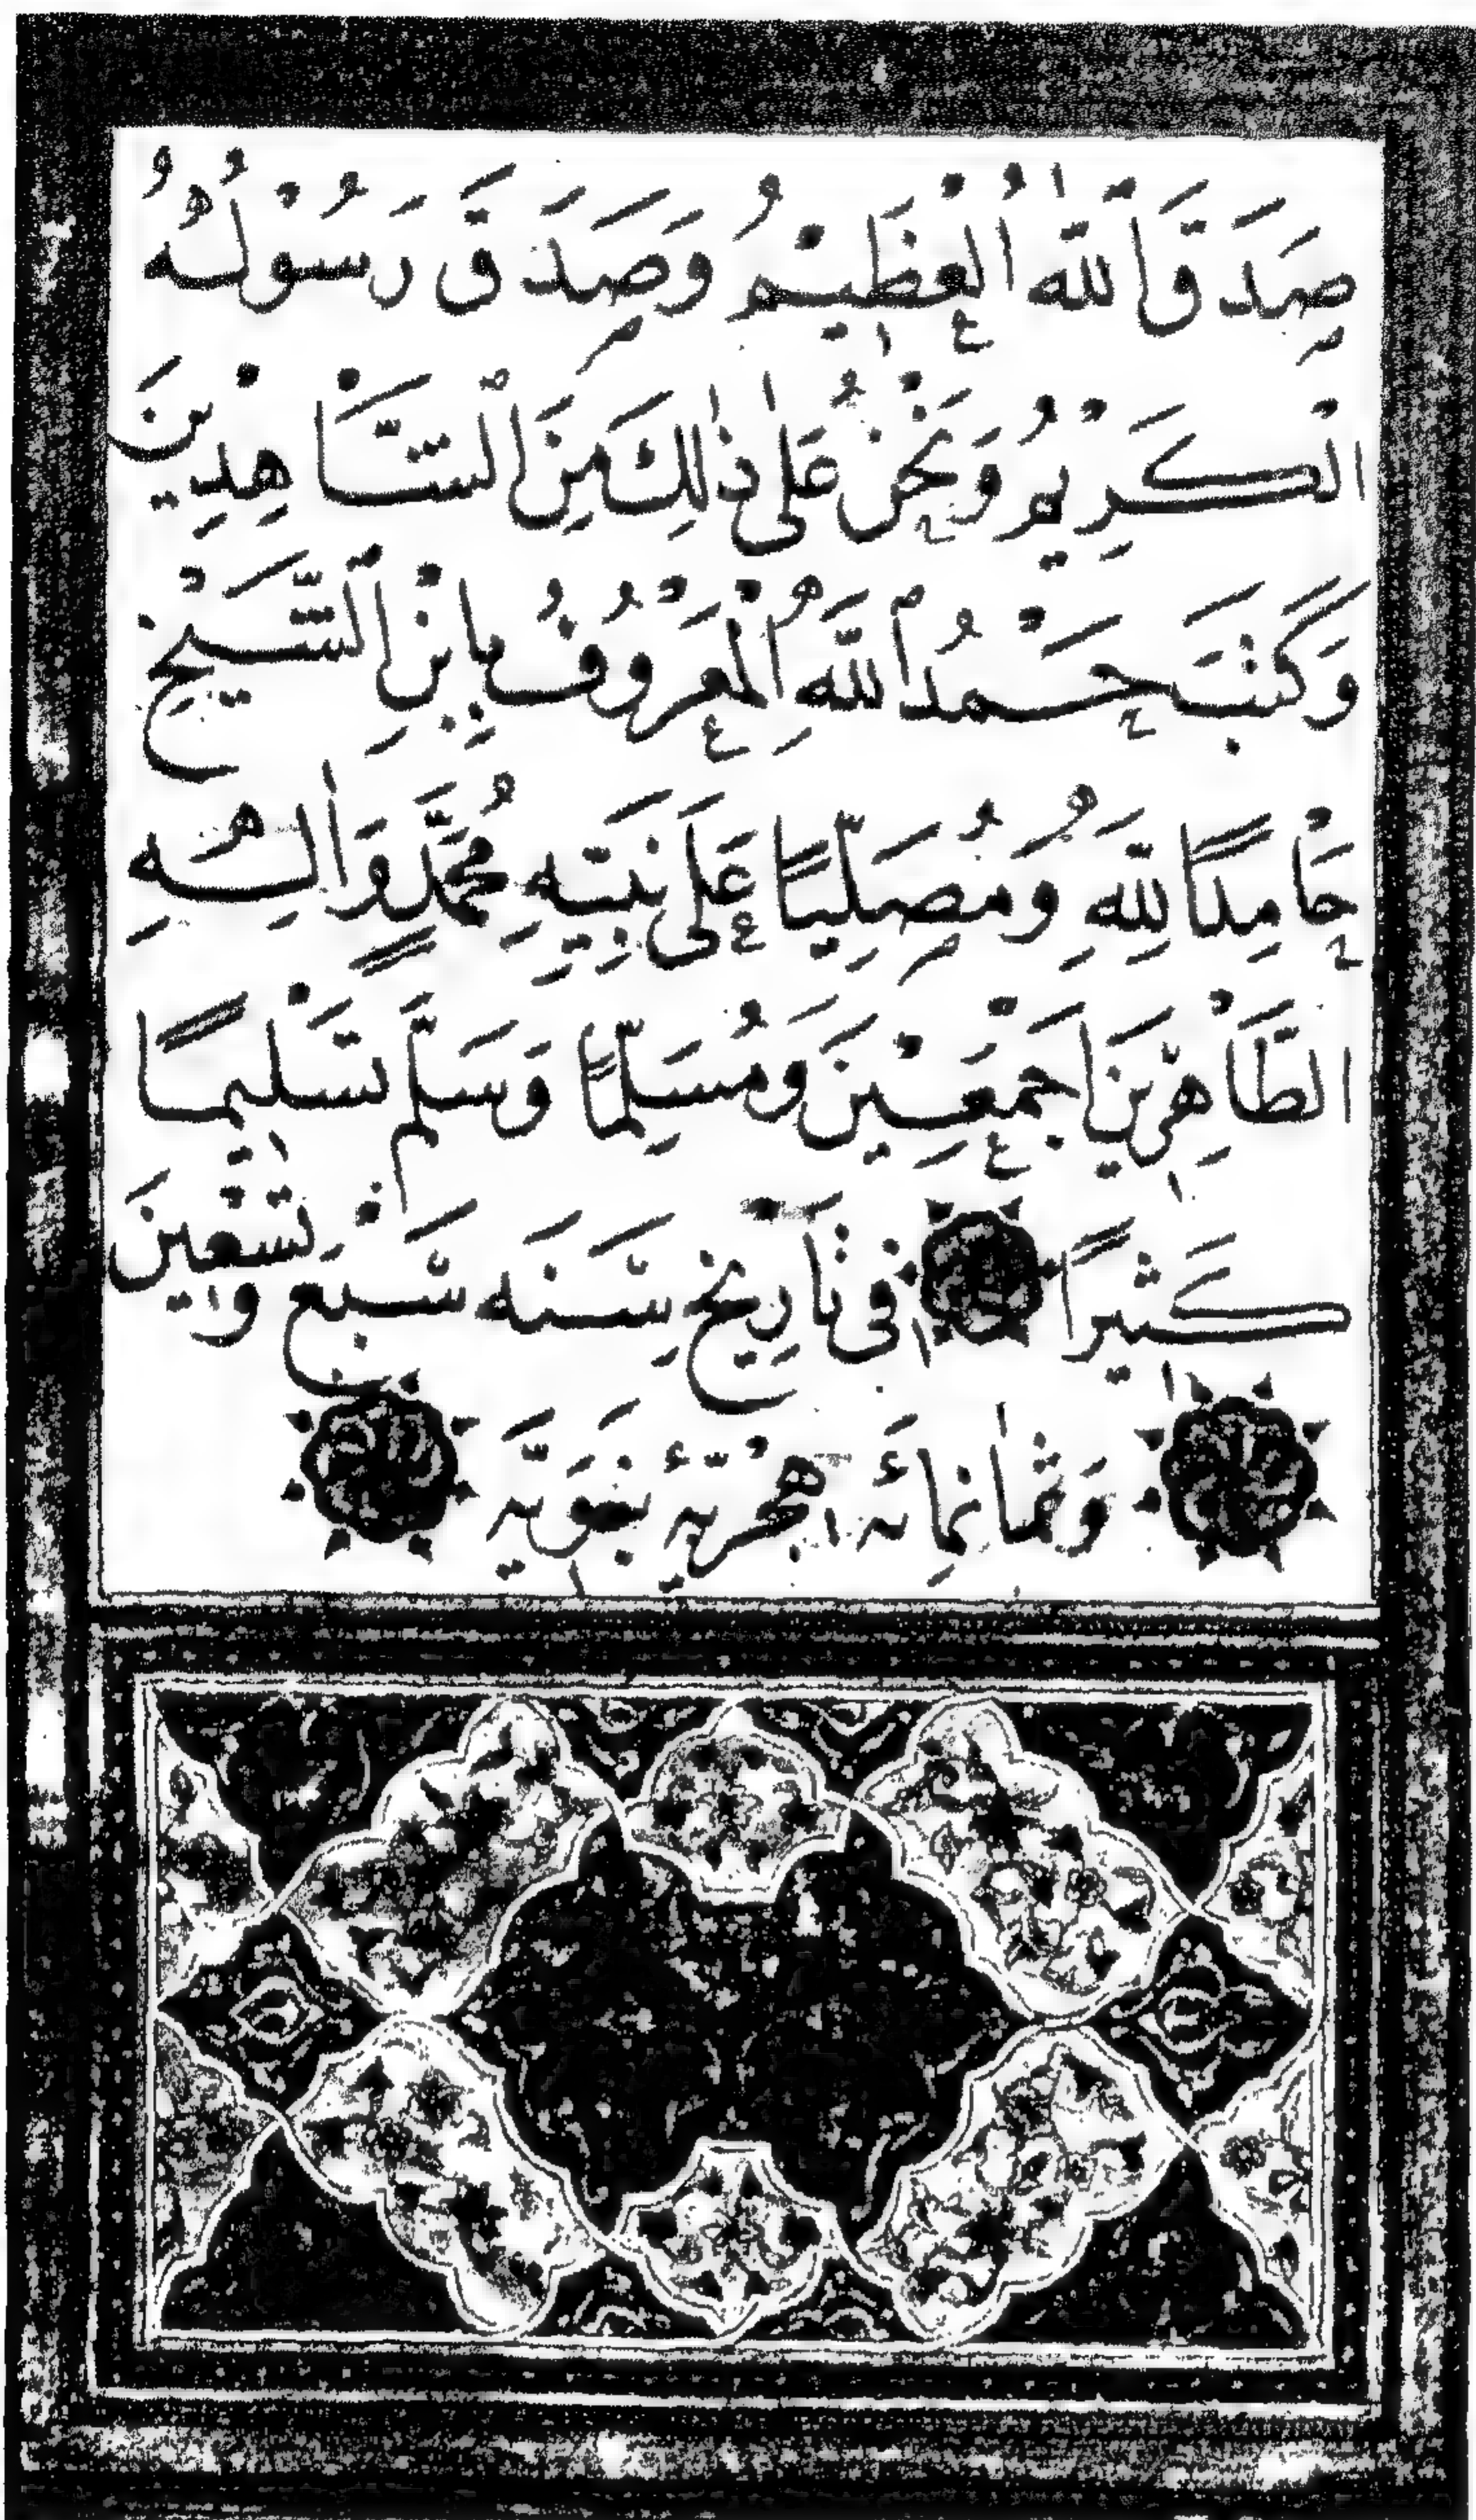 صَدَقَ اللّٰهُ الْعَظِيْمُ وَصَدَقَ رَسُوْلُهُ
الْكَرِيْمُ وَنَحْنُ عَلٰى ذٰلِكَ مِنَ الشَّاهِدِيْنَ
وَكَتَبَهُ حَمْدُ اللّٰهِ الْمَعْرُوْفُ بِابْنِ الشَّيْخِ
حَامِدًا لِلّٰهِ وَمُصَلِّيًا عَلَى نَبِيِّهِ مُحَمَّدٍ وَاٰلِهِ
الطَّاهِرِيْنَ اَجْمَعِيْنَ وَمُسَلِّمًا وَسَلَّمَ تَسْلِيمًا
كَثِيرًا فِى تَارِيخِ سَنَه سَبْع وَتِسْعِينَ
وَثَمَانمِائَه هِجْرِيَّه نَبَوِيَّه